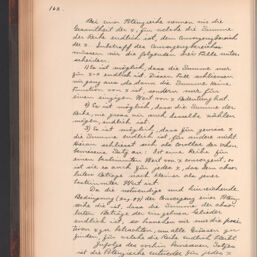 162.
Bei einer Potenzreihe nennen wir die
Gesamtheit der x, für welche die Summe
der Reihe endlich ist, den Convergenzbereich
der x. Inbetreff des Convergenzbereiches
müssen wir die folgenden drei Fälle unter-
scheiden.
1) Es ist möglich, dass die Summe nur
für x=0 endlich ist. Diesen Fall schliessen
wir ganz aus, da dann die Summe keine
Function von x ist, sondern nur für
einen einzigen Wert von x Bedeutung hat.
2) Es ist möglich, dass die Summe der
Reihe, wie gross wir auch dieselbe wählen
mögen, endlich ist.
3) Es ist möglich, dass für gewisse x
die Summe endlich ist, für andere nicht.
Hieran schliesst sich als Corollar der vorhin
bewiesene Satz an: Ist eine Reihe für
einen bestimmten Wert von x convergent, so
ist sie es auch für jedes x, das dem abso-
luten Betrage nach kleiner als jener
bestimmte Wert ist.
Da die notwendige und hinreichende
Bedingung für die Convergenz einer Potenz-
reihe die ist, dass die Summe der abso-
luten Beträge der einzelnen Glieder
endlich ist, so brauchen wir nur die posi-
tiven x zu betrachten, um alle Grössen zu
finden, für welche die Reihe endlich bleibt.
Infolge des vorhin bewiesenen Satzes
ist die Potenzreihe entweder für jedes x